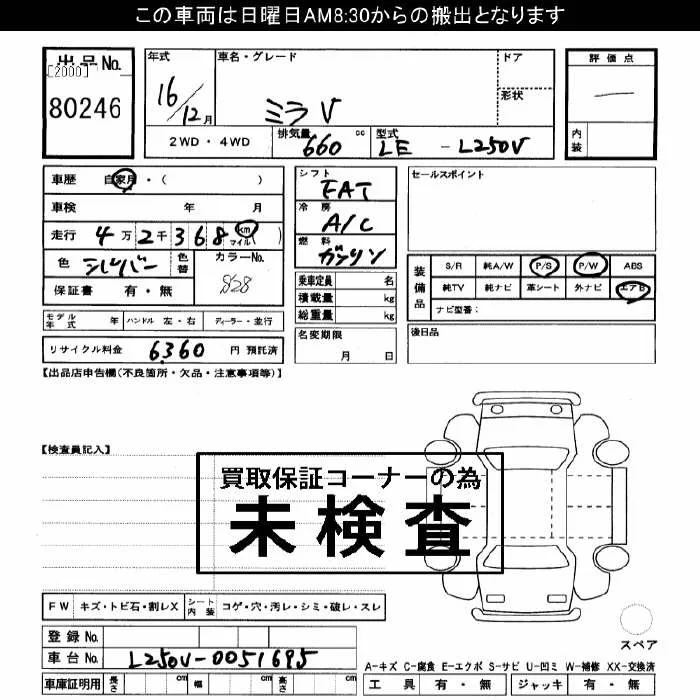 この車両は日曜日AM8:30からの搬出となります
出品No.
[2000]
80246
年式
16/12月
車名・グレード
ミラV
ドア
形状
評価点
内装
2WD・4WD
排気量 660 cc
型式 LE - L250V
車歴 自家用・( )
車検 年 月
走行 4万2千368 km マイル ( )
色 シルバー
色替
カラーNo.
S28
保証書 有・無
シフト
FAT
冷房
A/C
燃料
ガソリン
乗車定員 名
積載量 kg
総重量 kg
名変期限
月 日
セールスポイント
装備品
S/R 純A/W P/S P/W ABS
純TV 純ナビ 革シート 外ナビ エアB
ナビ型番:
後日品
モデル年式 年 ハンドル 左・右 ディーラー・並行
リサイクル料金 6,360 円 預託済
【出品店申告欄(不良箇所・欠品・注意事項等)】
【検査員記入】
買取保証コーナーの為
未検査
FW キズ・トビ石・割レX シート内装 コゲ・穴・汚レ・シミ・破レ・スレ
登録No.
車台No. L250V-0051695
車庫証明用 長さ cm 幅 cm 高さ cm
スペア
A-キズ C-腐食 E-エクボ S-サビ U-凹ミ W-補修 XX-交換済
工具 有・無 ジャッキ 有・無